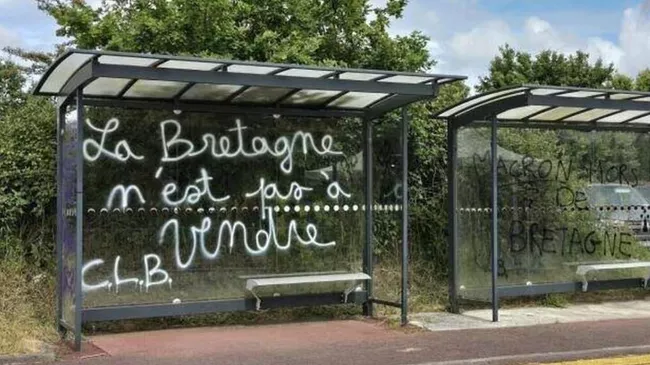 La Bretagne
n'est pas à
vendre
C.L.B.
MACRON HORS
DE
BRETAGNE